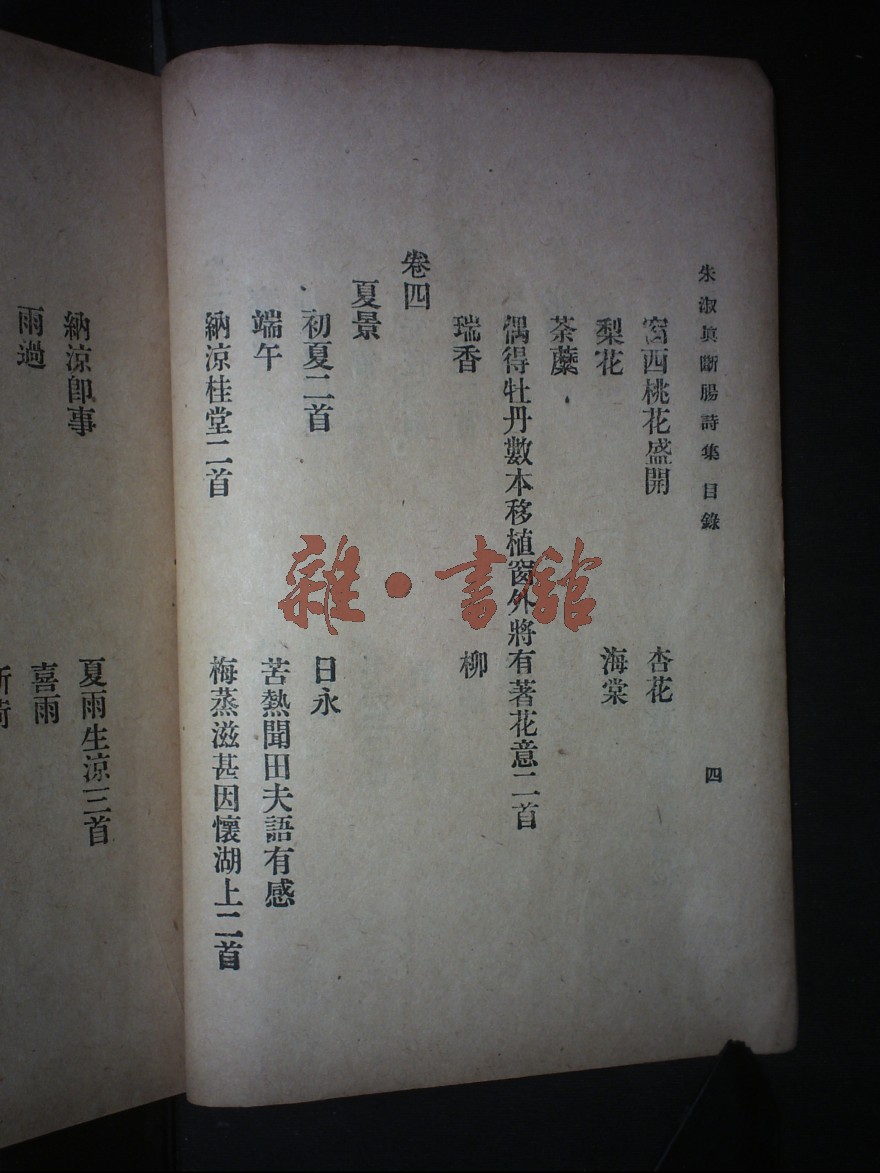 朱淑真斷腸詩集 目錄
四
窗西桃花盛開
杏花
梨花
海棠
荼蘼
偶得牡丹數本移植窗外將有著花意二首
瑞香
柳
卷四
夏景
初夏二首
日永
端午
苦熱聞田夫語有感
納涼桂堂二首
梅蒸滋甚因懷湖上二首
納涼卽事
夏雨生涼三首
雨過
喜雨
雜·書館